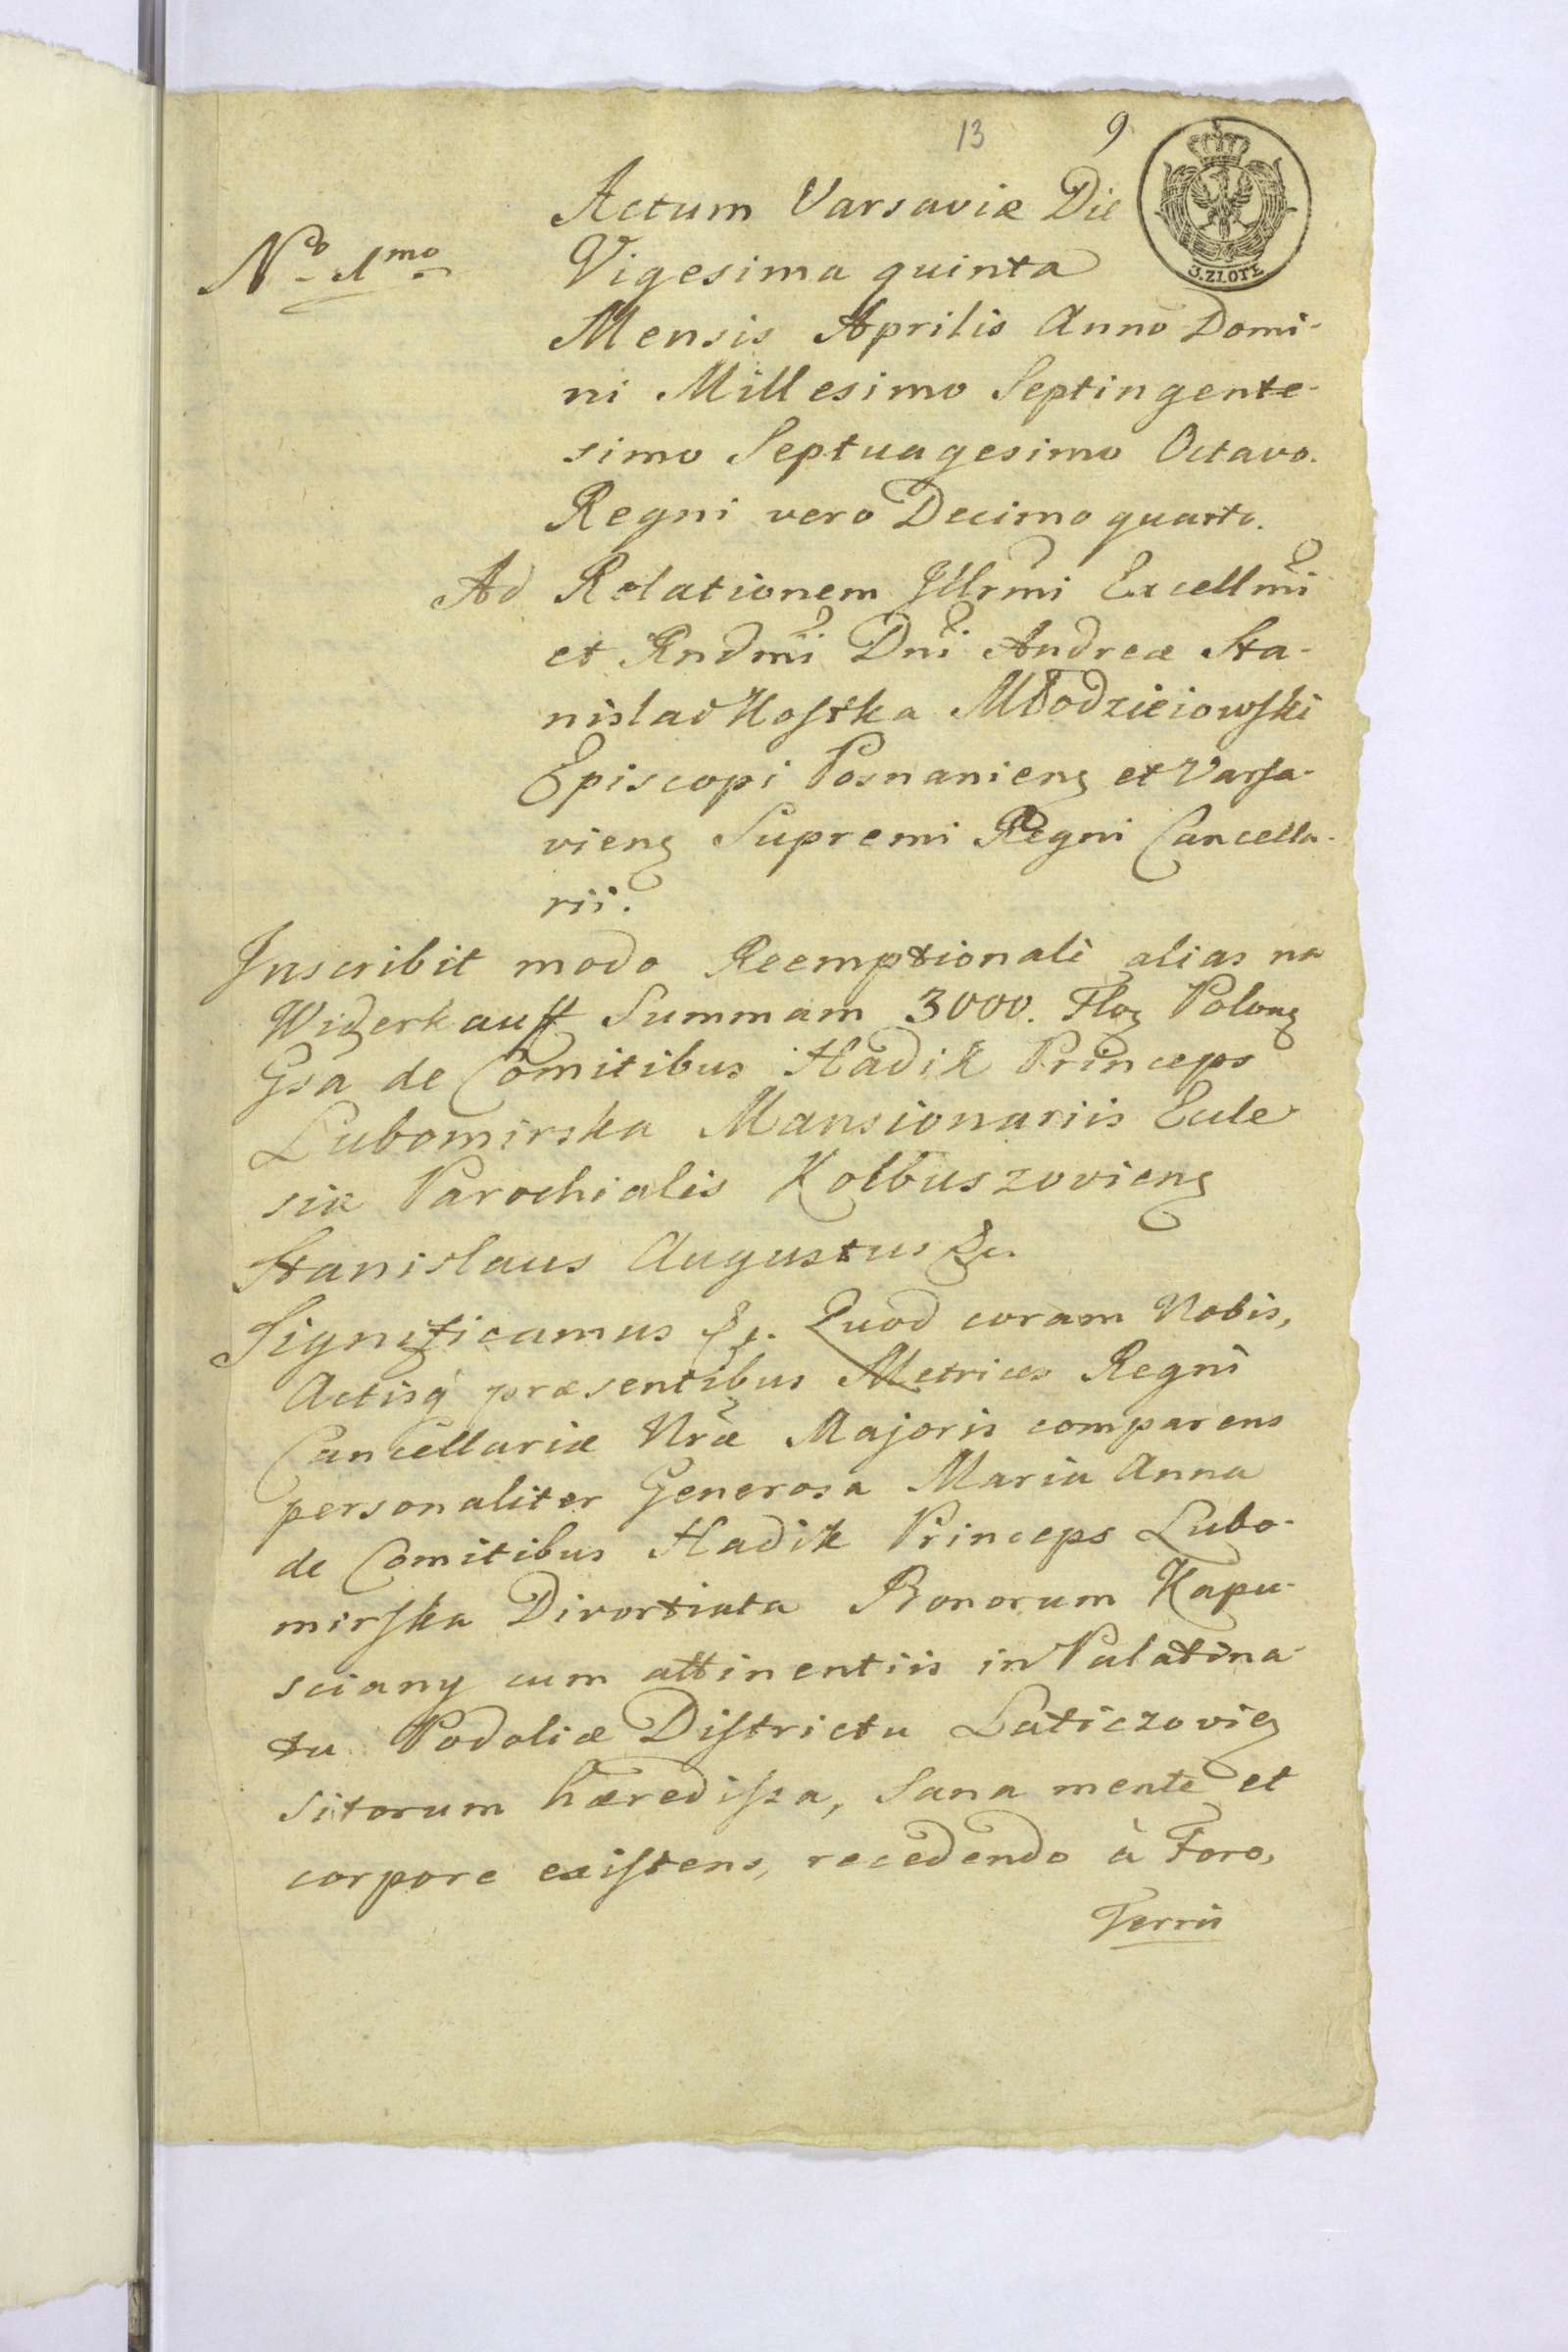 13 9
3. ZLOTE
Actum Varsaviæ Die
No 1mo
Vigesima quinta
Mensis Aprilis Anno Domi-
ni Millesimo Septingente-
simo Septuagesimo Octavo.
Regni vero Decimo quarto.
Ad Relationem Jllrmi Excellmi
et Rndmi Dni Andreæ Sta-
nislai Kostka Młodzieiowski
Episcopi Posnanieng et Varsa-
vieng Supremi Regni Cancella-
rii.
Inscribit modo Reemptionali alias na
Widerkauff Summam 3000. Flog Polong
Gsa de Comitibus Hadik Princeps
Lubomirska Mansionariis Eccle
siæ Parochialis Kolbuszovieng
Stanislaus Augustus &c.
Significamus &c. Quod coram Nobis,
Actisq præsentibus Metrices Regni
Cancellariæ Nræ Majoris comparens
personaliter Generosa Maria Anna
de Comitibus Hadik Princeps Lubo-
mirska Divortiata Bonorum Kapu-
sciany cum attinentiis in Palatina-
tu Podoliæ Districtu Laticzovieg
sitorum hæredissa, sana mente et
corpore existens, recedendo à Foro,
Terrii